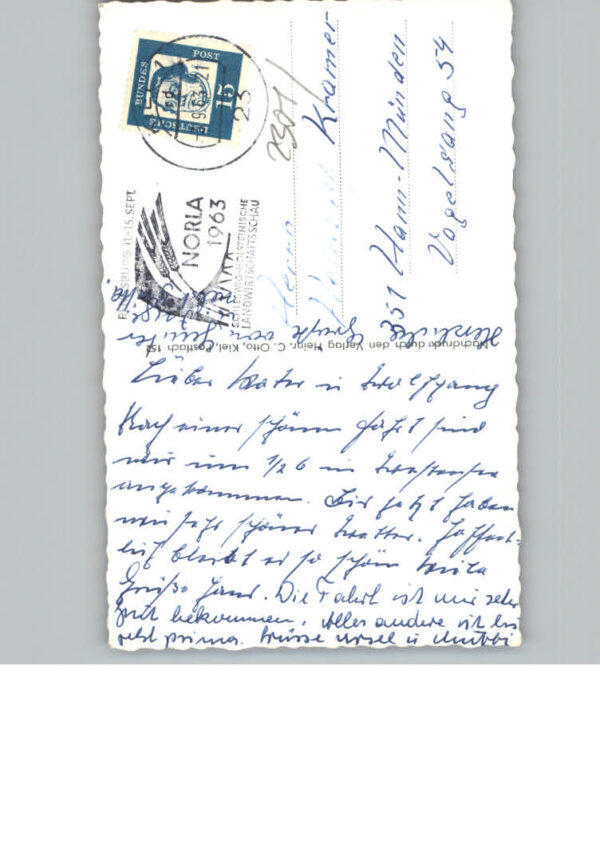 Lieber Vater u Wolfgang
Nach einer schönen Fahrt sind
wir um 1/2 6 in
angekommen. Bis jetzt haben
wir sehr schönes Wetter. Hoffent-
lich bleibt es so schön Viele
Grüße Hans. Die Fahrt ist mir sehr
gut bekommen. Alles andere ist bis
jetzt prima. Grüsse Ursel u Mutti
Herzliche Grüße von
Nachdruck durch den Verlag Heinr. C. Otto, Kiel, Postfach 152
DEUTSCHE BUNDESPOST
15
9.63.-21
23
RENDSBURG 11-15. SEPT.
NORLA
1963
SCHLESWIG-HOLSTEINISCHE
LANDWIRTSCHAFTSSCHAU
2301
Herrn
Kramer
351 Hann-Münden
Vogelsang 54